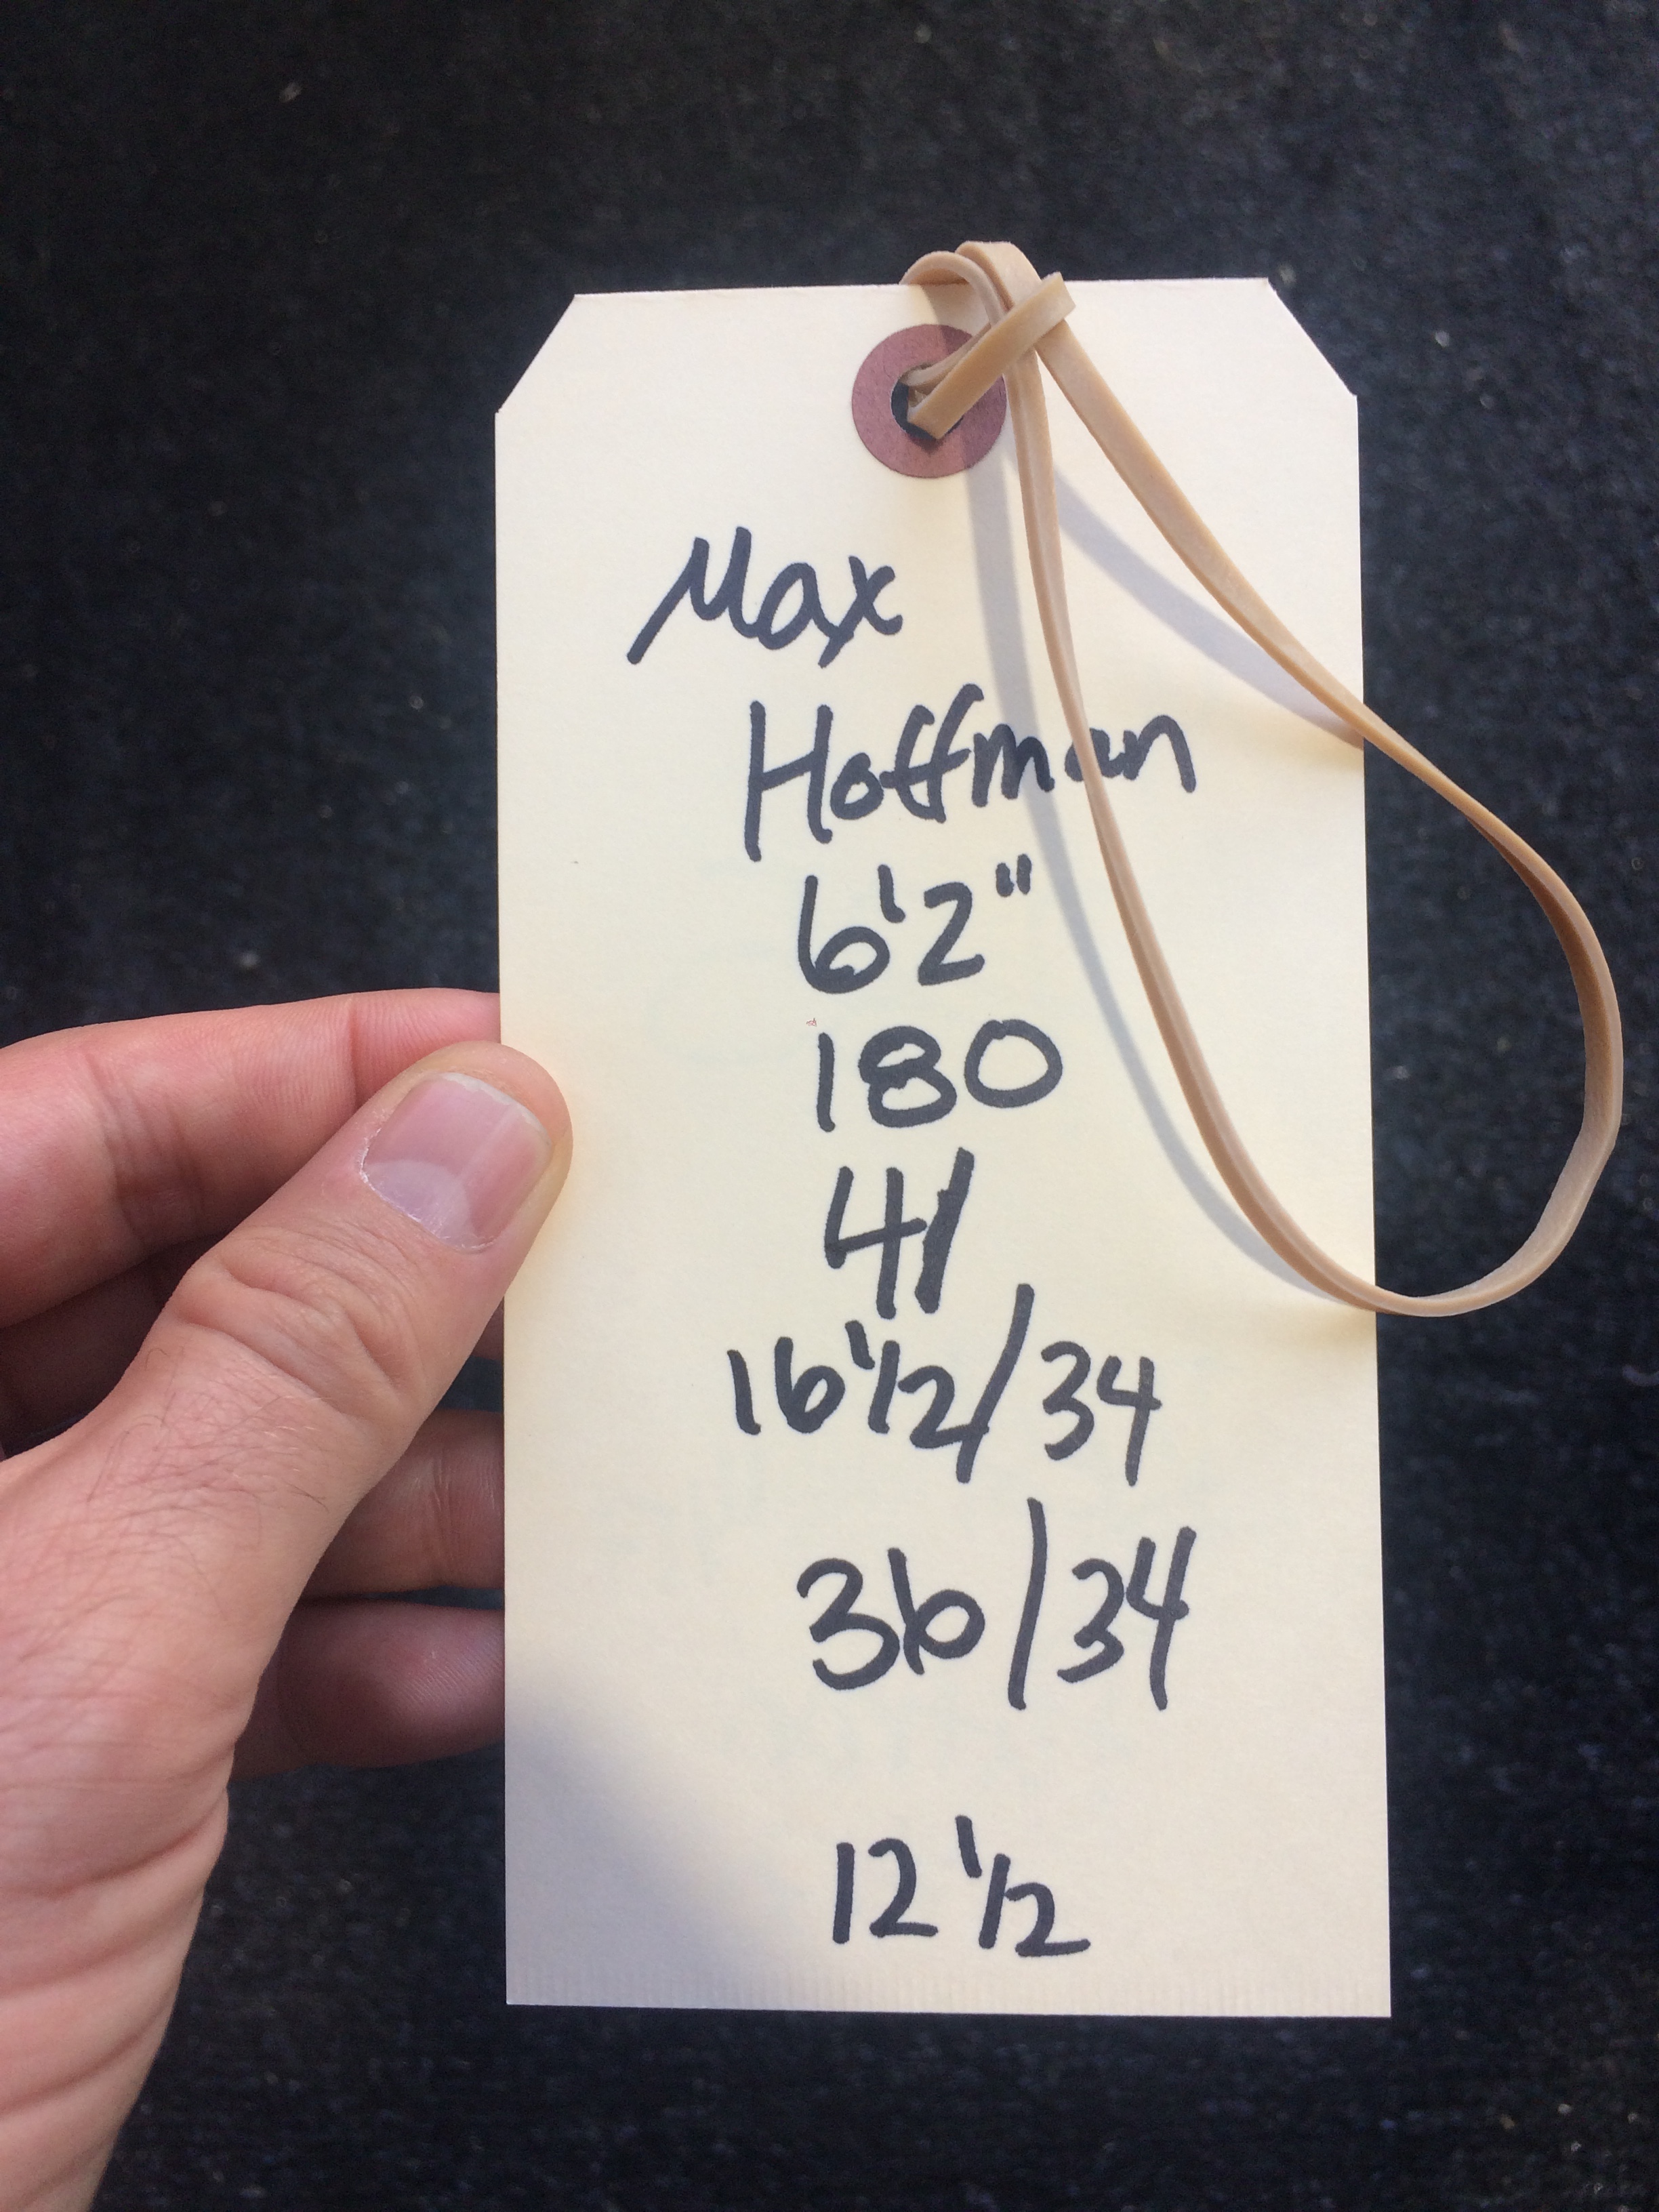 Max
Hoffman
6'2"
180
41
16 1/2/34
36/34
12 1/2